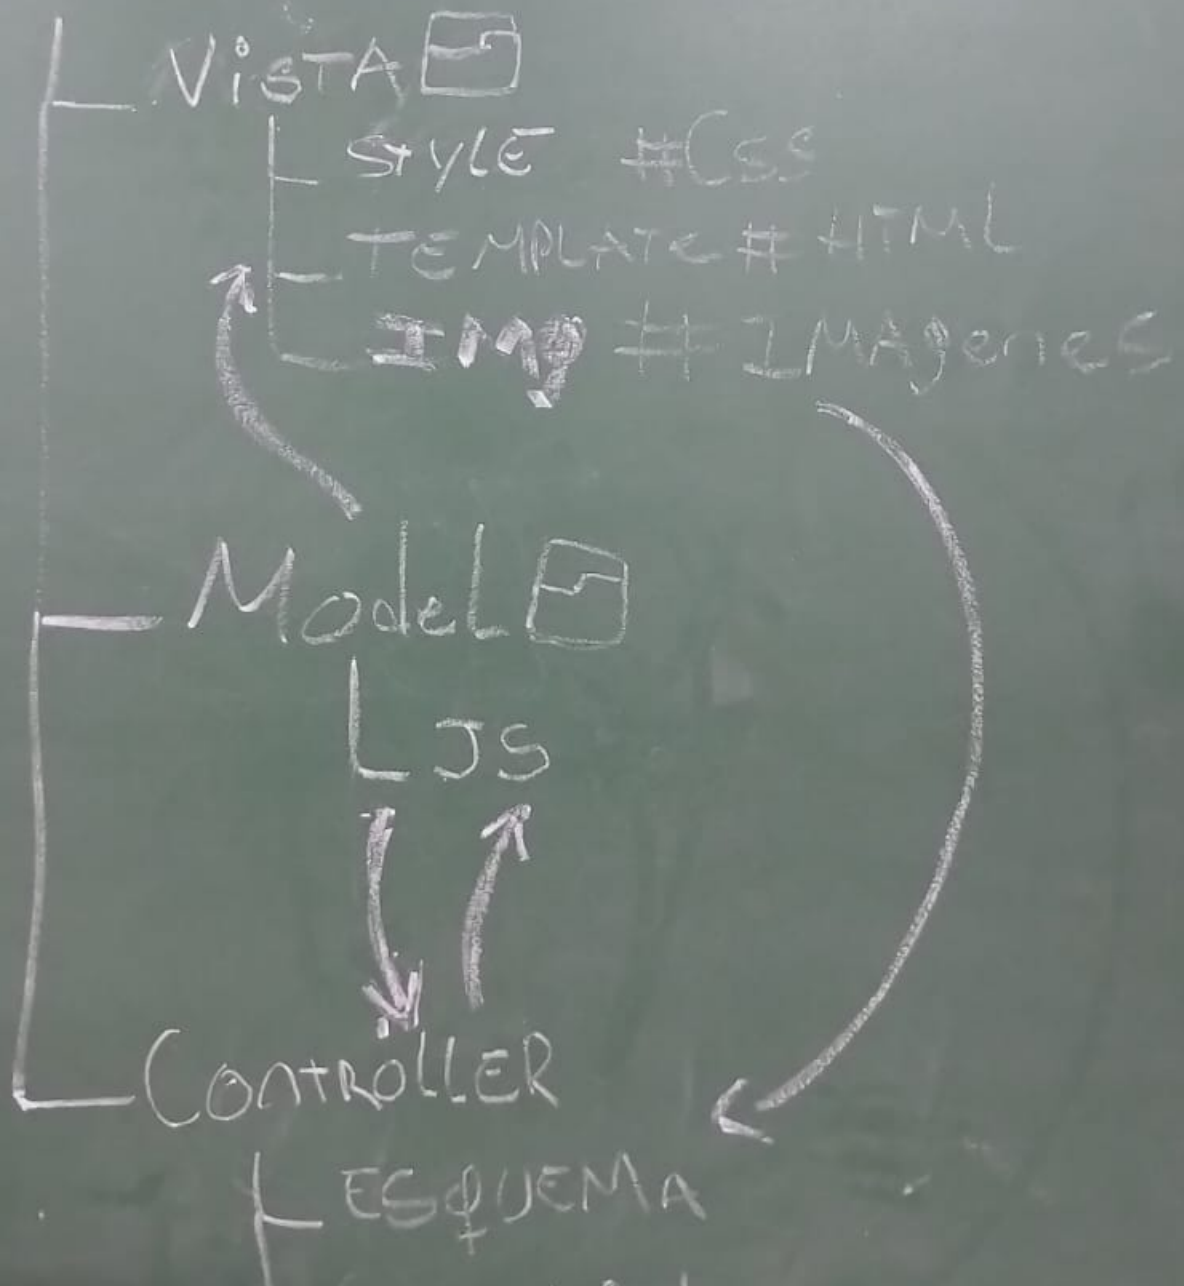 VisTA
StYLE #CSS
TEMPLATE # HTML
IMg # IMAgeneS
ModeL
JS
CONTROLLER
ESQUEMA